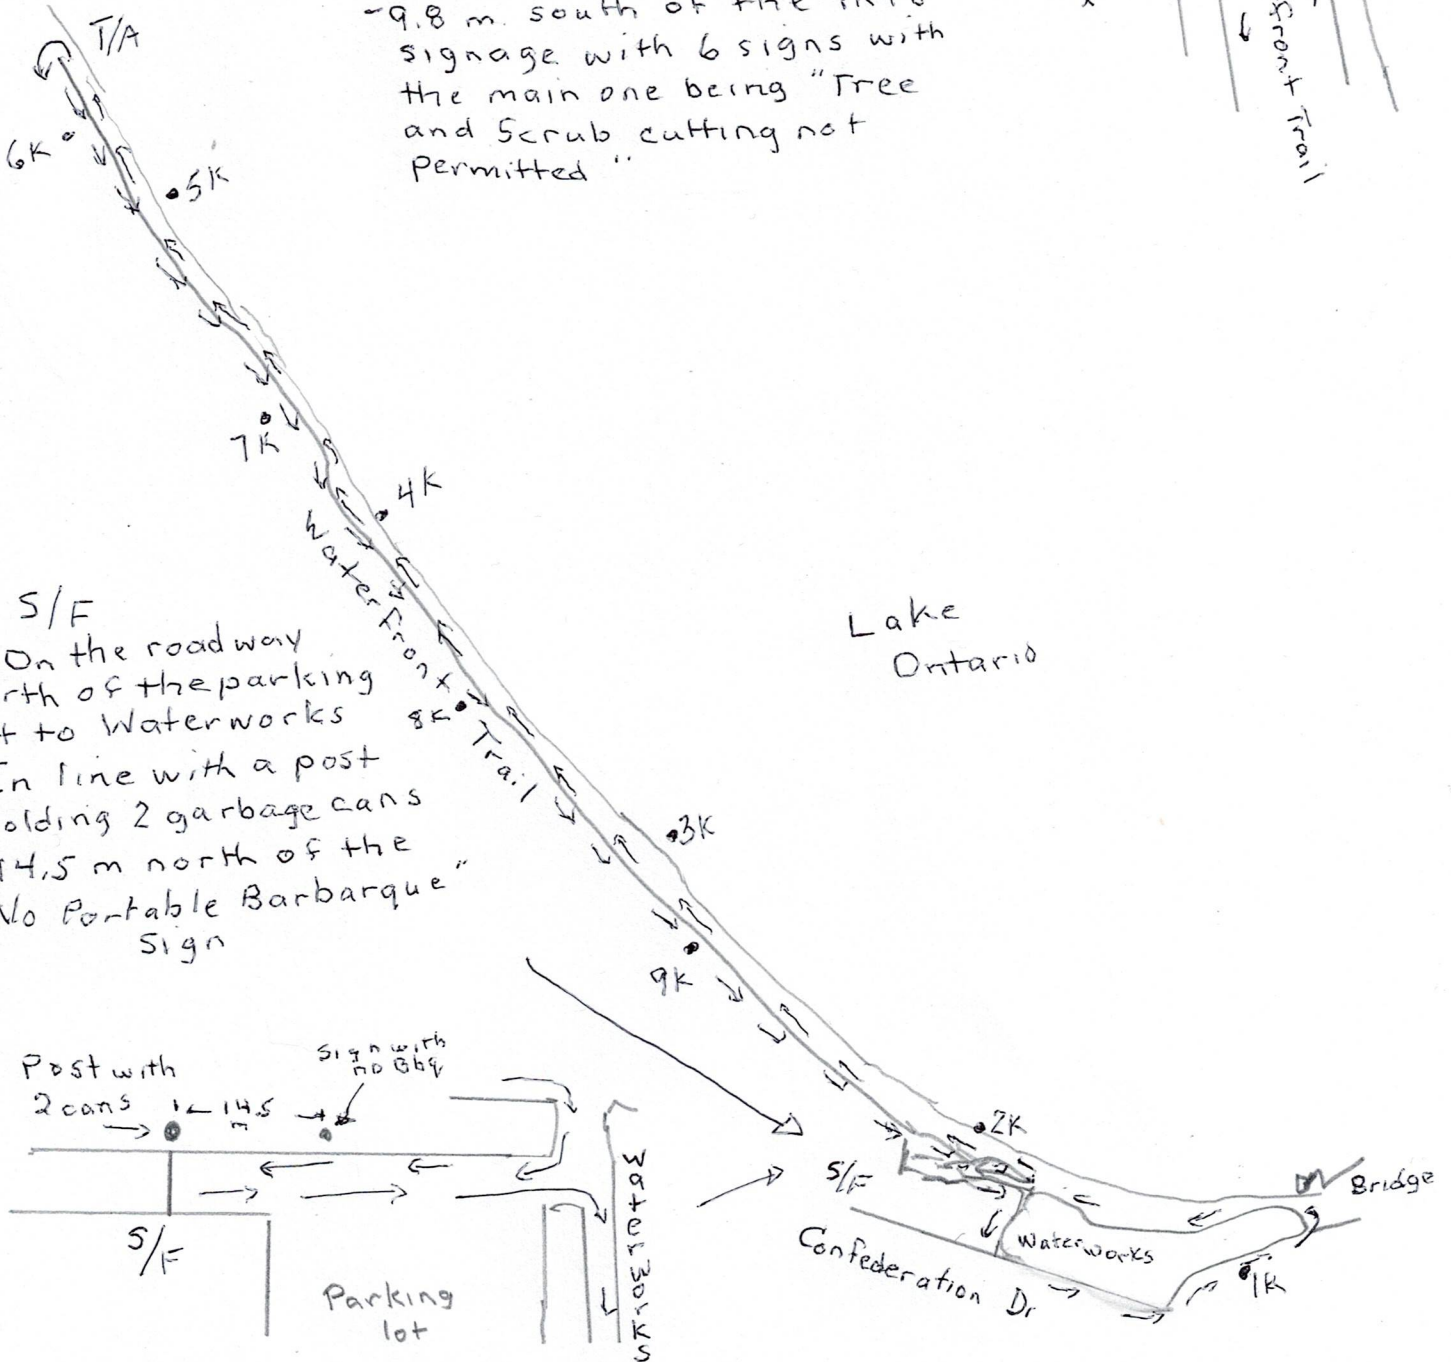 T/A
-9.8 m. south of the
signage with 6 signs with
the main one being "Tree
and Scrub cutting not
Permitted"
front Trail
6K
5K
7K
4K
Waterfront Trail
8K
Lake
Ontario
S/F
On the roadway
rth of the parking
t to Waterworks
In line with a post
olding 2 garbage cans
14.5 m north of the
No Portable Barbarque"
Sign
3K
9K
Post with
2 cans
14.5
m
Sign with
no Bbq
S/F
Parking
lot
Waterworks
2K
S/F
Bridge
Waterworks
Confederation Dr
1K